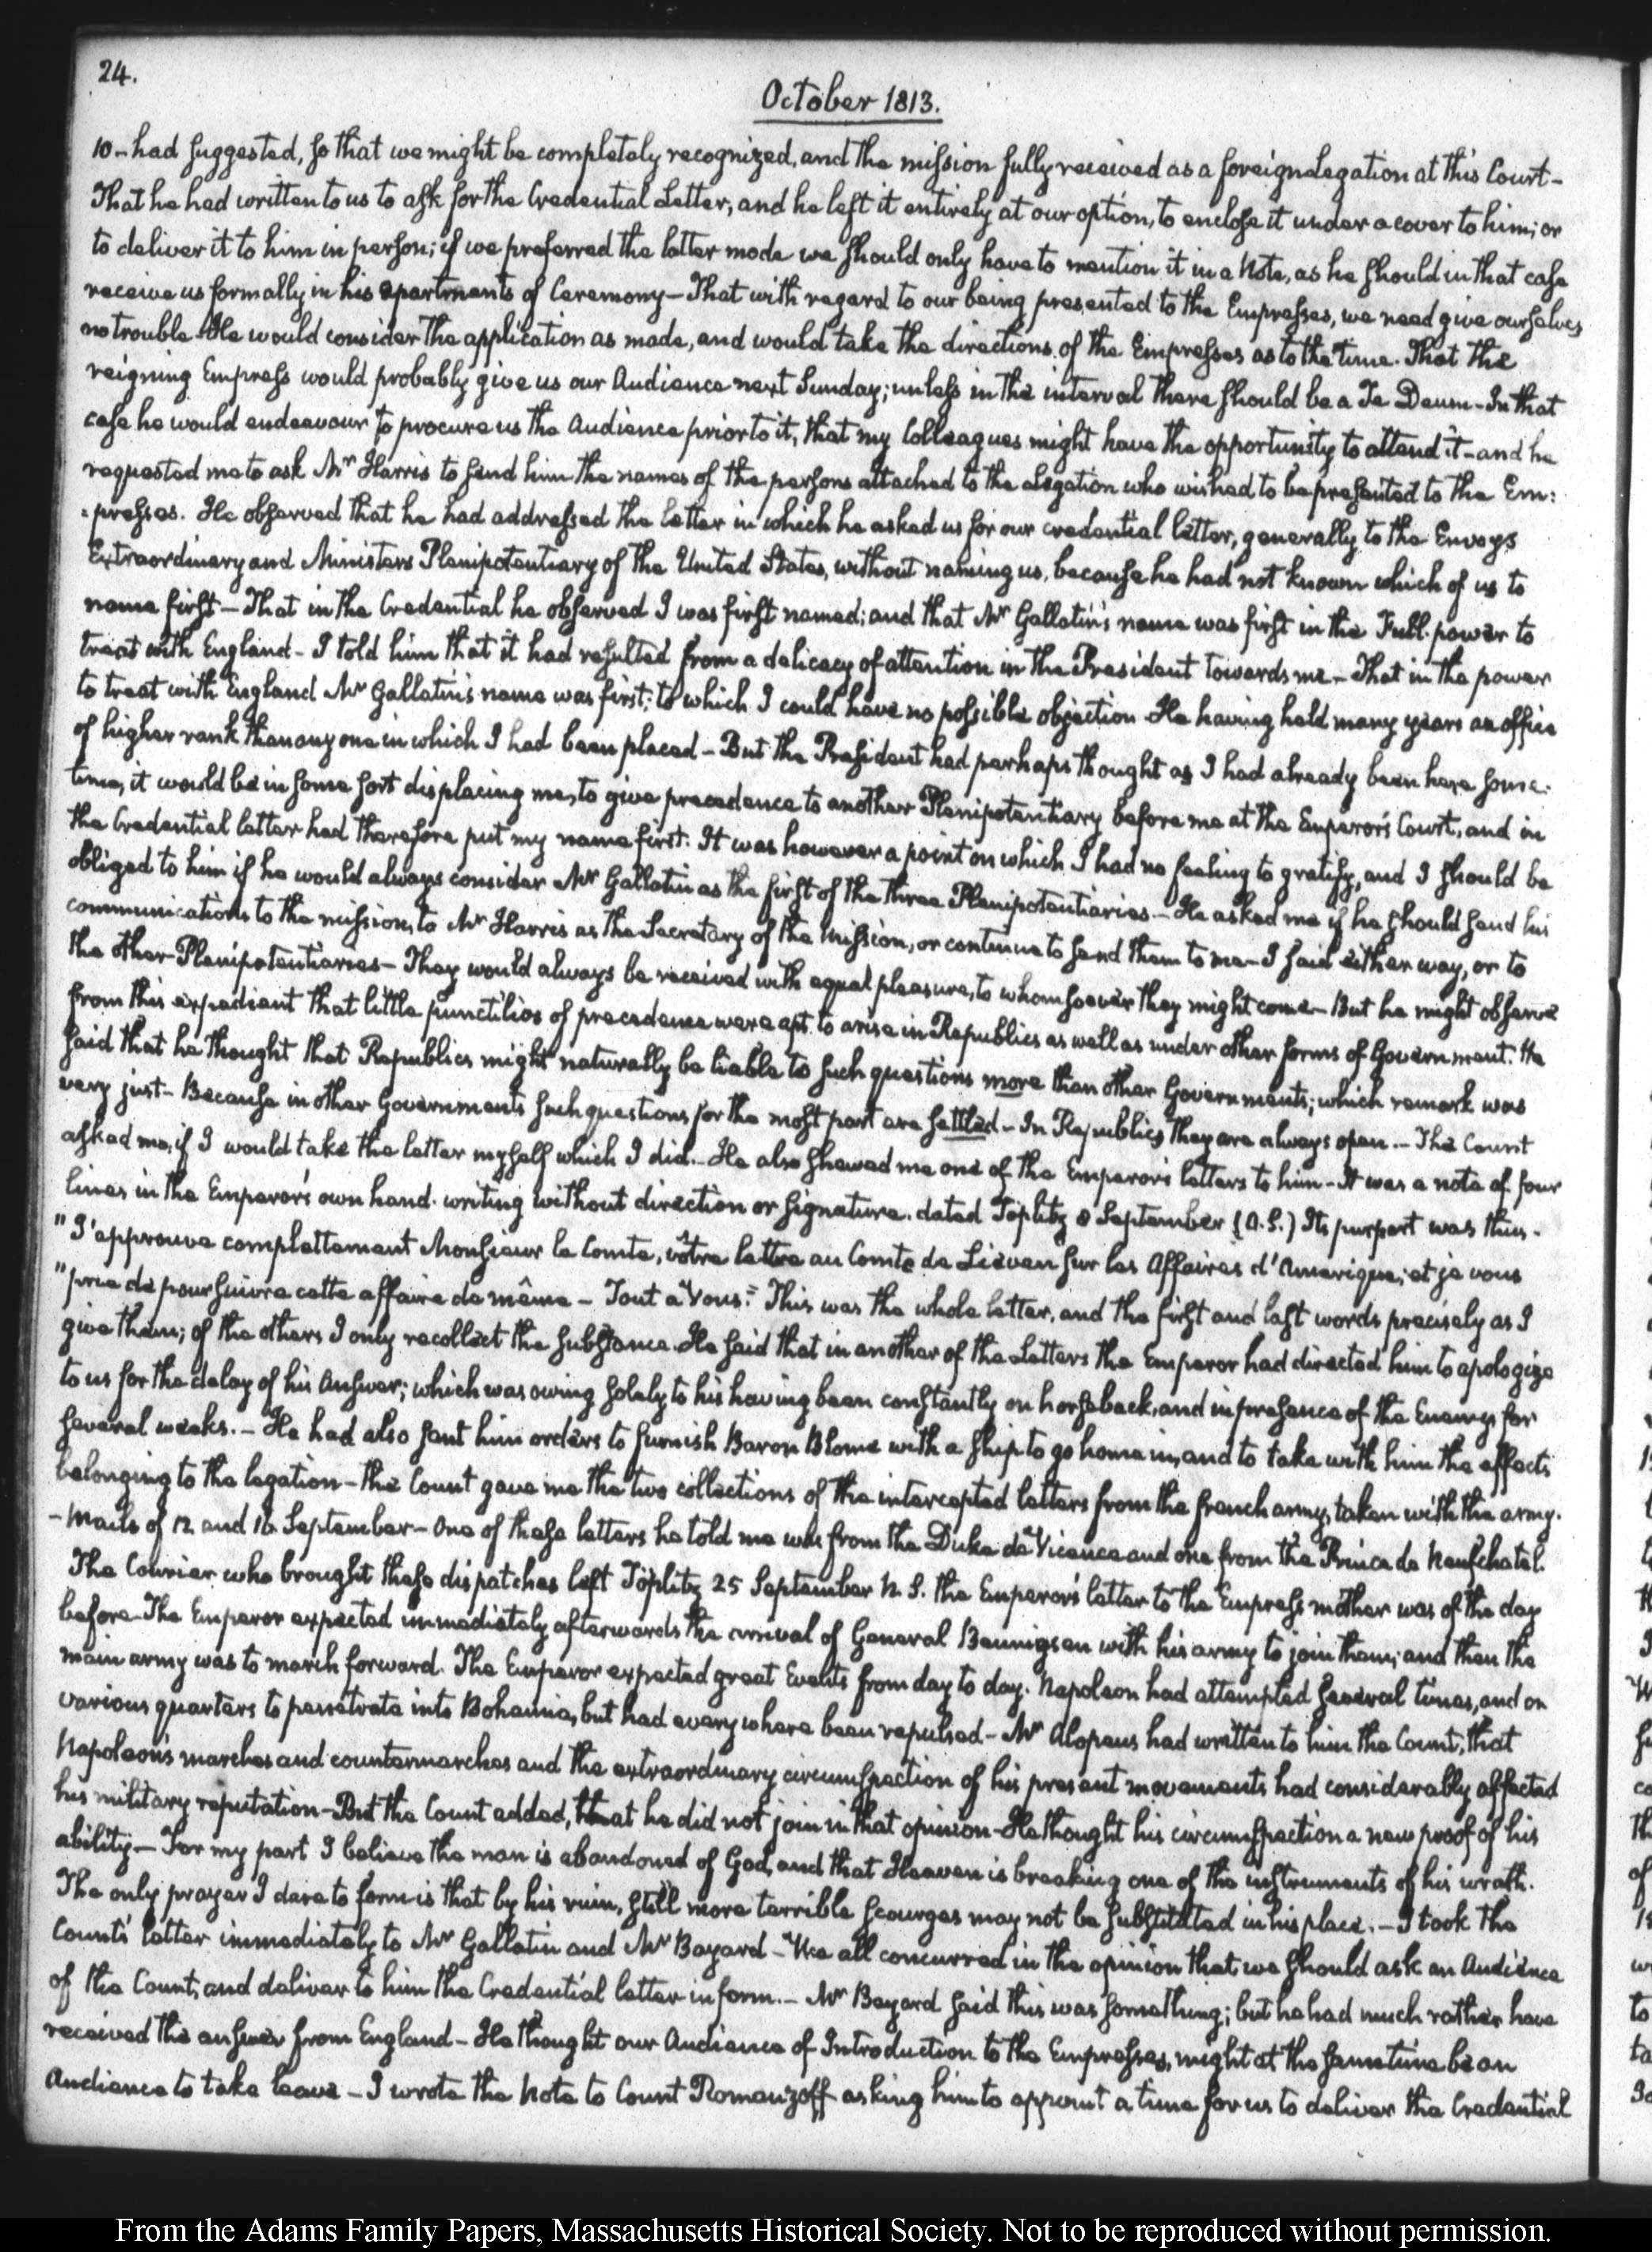 24.
October 1813.
10 – had suggested, so that we might be completely recognized, and the mission fully received as a foreign legation at this Court –
That he had written to us to ask for the Credential Letter, and he left it entirely at our option, to enclose it under a cover to him; or
to deliver it to him in person; if we preferred the latter mode we should only have to mention it in a Note, as he should in that case
receive us formally in his apartments of Ceremony – That with regard to our being presented to the Empresses, we need give ourselves
no trouble. He would consider the application as made, and would take the directions of the Empresses as to the time. That the
reigning Empress would probably give us our Audience next Sunday; unless in the interval there should be a Te Deum – In that
case he would endeavour to procure us the Audience prior to it, that my Colleagues might have the opportunity to attend it – and he
requested me to ask Mr Harris to send him the names of the persons attached to the Legation who wished to be presented to the Em:
:presses. He observed that he had addressed the letter in which he asked us for our credential letter, generally to the Envoys
Extraordinary and Ministers Plenipotentiary of the United States, without naming us, because he had not known which of us to
name first – That in the Credential he observed I was first named; and that Mr Gallatin's name was first in the Full-power to
treat with England – I told him that it had resulted from a delicacy of attention in the President towards me – That in the power
to treat with England Mr Gallatin's name was first; to which I could have no possible objection. He having held many years an office
of higher rank than any one in which I had been placed – But the President had perhaps thought as I had already been here some
time, it would be in some sort displacing me, to give precedence to another Plenipotentiary before me at the Emperor's Court, and in
the Credential letter had therefore put my name first. It was however a point on which I had no feeling to gratify, and I should be
obliged to him if he would always consider Mr Gallatin as the first of the three Plenipotentiaries – He asked me if he should send his
communications to the mission, to Mr Harris as the Secretary of the Mission, or continue to send them to me – I said either way, or to
the other Plenipotentiaries – They would always be received with equal pleasure, to whomsoever they might come – But he might observe
from this expedient that little punctilios of precedence were apt to arise in Republics as well as under other forms of Government. He
said that he thought that Republics might naturally be liable to such questions more than other Governments; which remark was
very just – Because in other Governments such questions for the most part are settled – In Republics they are always open. – The Count
asked me, if I would take the letter myself which I did. – He also shewed me one of the Emperor's letters to him – It was a note of four
lines in the Emperor's own hand-writing without direction or signature. dated Töplitz 8 September (O.S.) Its purport was thus –
"J'approuve complettement Monsieur le Comte, vôtre lettre au Comte de Lieven sur les Affaires d'Amerique; et je vous
"prie de poursuivre cette affaire de même – Tout à Vous." This was the whole letter, and the first and last words precisely as I
give them; of the others I only recollect the substance. He said that in another of the Letters the Emperor had directed him to apologize
to us for the delay of his Answer; which was owing solely to his having been constantly on horseback, and in presence of the Enemy for
several weeks. – He had also sent him orders to furnish Baron Blome with a ship to go home in, and to take with him the effects
belonging to the legation – the Count gave me the two collections of the intercepted letters from the french army, taken with the army-
-Mails of 12 and 16 September – One of these letters he told me was from the Duke de Vicence and one from the Prince de Neufchatel.
The Courier who brought these dispatches left Töplitz 25 September N. S. the Emperor's letter to the Empress mother was of the day
before. The Emperor expected immediately afterwards the arrival of General Bennigsen with his army to join them; and then the
main army was to march forward. The Emperor expected great Events from day to day. Napoleon had attempted several times, and on
various quarters to penetrate into Bohemia, but had every where been repulsed – Mr Alopeus had written to him the Count, that
Napoleon's marches and countermarches and the extraordinary circumspection of his present movements had considerably affected
his military reputation – But the Count added, that he did not join in that opinion – He thought his circumspection a new proof of his
ability – For my part I believe the man is abandoned of God, and that Heaven is breaking one of the instruments of his wrath.
The only prayer I dare to form is that by his ruin, still more terrible scourges may not be substituted in his place. – I took the
Count's letter immediately to Mr Gallatin and Mr Bayard – We all concurred in the opinion that we should ask an Audience
of the Count, and deliver to him the Credential letter in form. – Mr Bayard said this was something; but he had much rather have
received the answer from England – He thought our Audience of Introduction to the Empresses, might at the same time be an
Audience to take leave – I wrote the Note to Count Romanzoff asking him to appoint a time for us to deliver the Credential
From the Adams Family Papers, Massachusetts Historical Society. Not to be reproduced without permission.